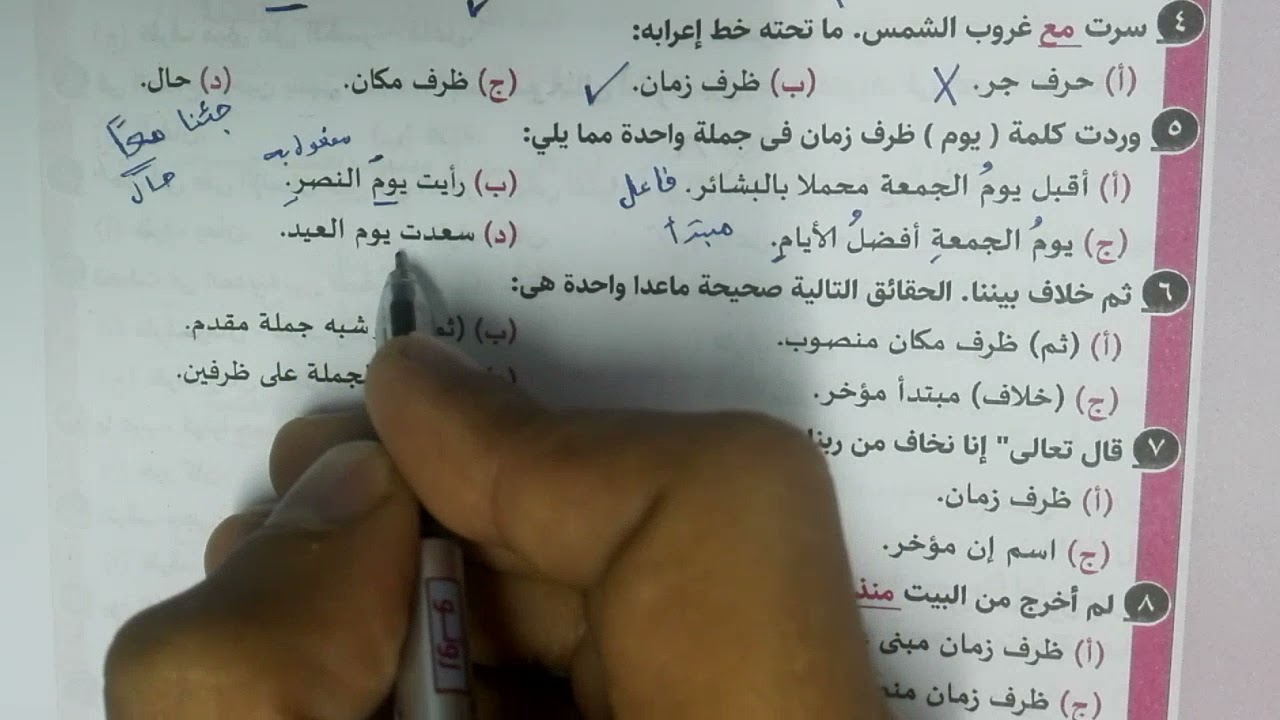 ٤ سرت مع غروب الشمس. ما تحته خط إعرابه:
(أ) حرف جر. (ب) ظرف زمان. (ج) ظرف مكان. (د) حال.
جئنا معًا
حال
٥ وردت كلمة ( يوم ) ظرف زمان فى جملة واحدة مما يلي:
(أ) أقبل يومُ الجمعة محملا بالبشائر. فاعل (ب) رأيت يومَ النصرِ. مفعول به
(ج) يومُ الجمعةِ أفضلُ الأيامِ. مبتدأ (د) سعدت يوم العيد.
٦ ثم خلاف بيننا. الحقائق التالية صحيحة ماعدا واحدة هى:
(أ) (ثم) ظرف مكان منصوب. (ب) شبه جملة مقدم.
(ج) (خلاف) مبتدأ مؤخر. على ظرفين.
٧ قال تعالى" إنا نخاف من ربنا
(أ) ظرف زمان.
(ج) اسم إن مؤخر.
٨ لم أخرج من البيت منذ
(أ) ظرف زمان مبنى
(ج) ظرف زمان